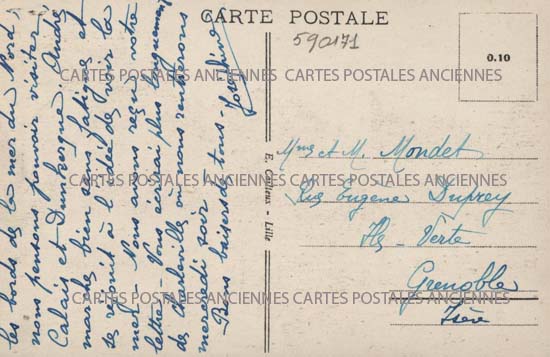 CARTE POSTALE
590171
0.10
les bords de la mer du Nord,
nous pensons pouvoir visiter
Calais et Dunkerque. André
marche bien sans fatigue et
se réjouit à l'idée de voir la
mer. Nous avons reçu votre
lettre. Vous écrirai plus longuement
de Charleville où nous rentrerons
mercredi soir.
Bons baisers de tous.
E. Cailteux - Lille
Mme et M. Mondet
Rue Eugène Duprey
Ile-Verte
Grenoble
Isère
CARTES POSTALES ANCIENNES CARTES POSTALES ANCIENNES
CARTES POSTALES ANCIENNES CARTES POSTALES ANCIENNES
CARTES POSTALES ANCIENNES CARTES POSTALES ANCIENNES